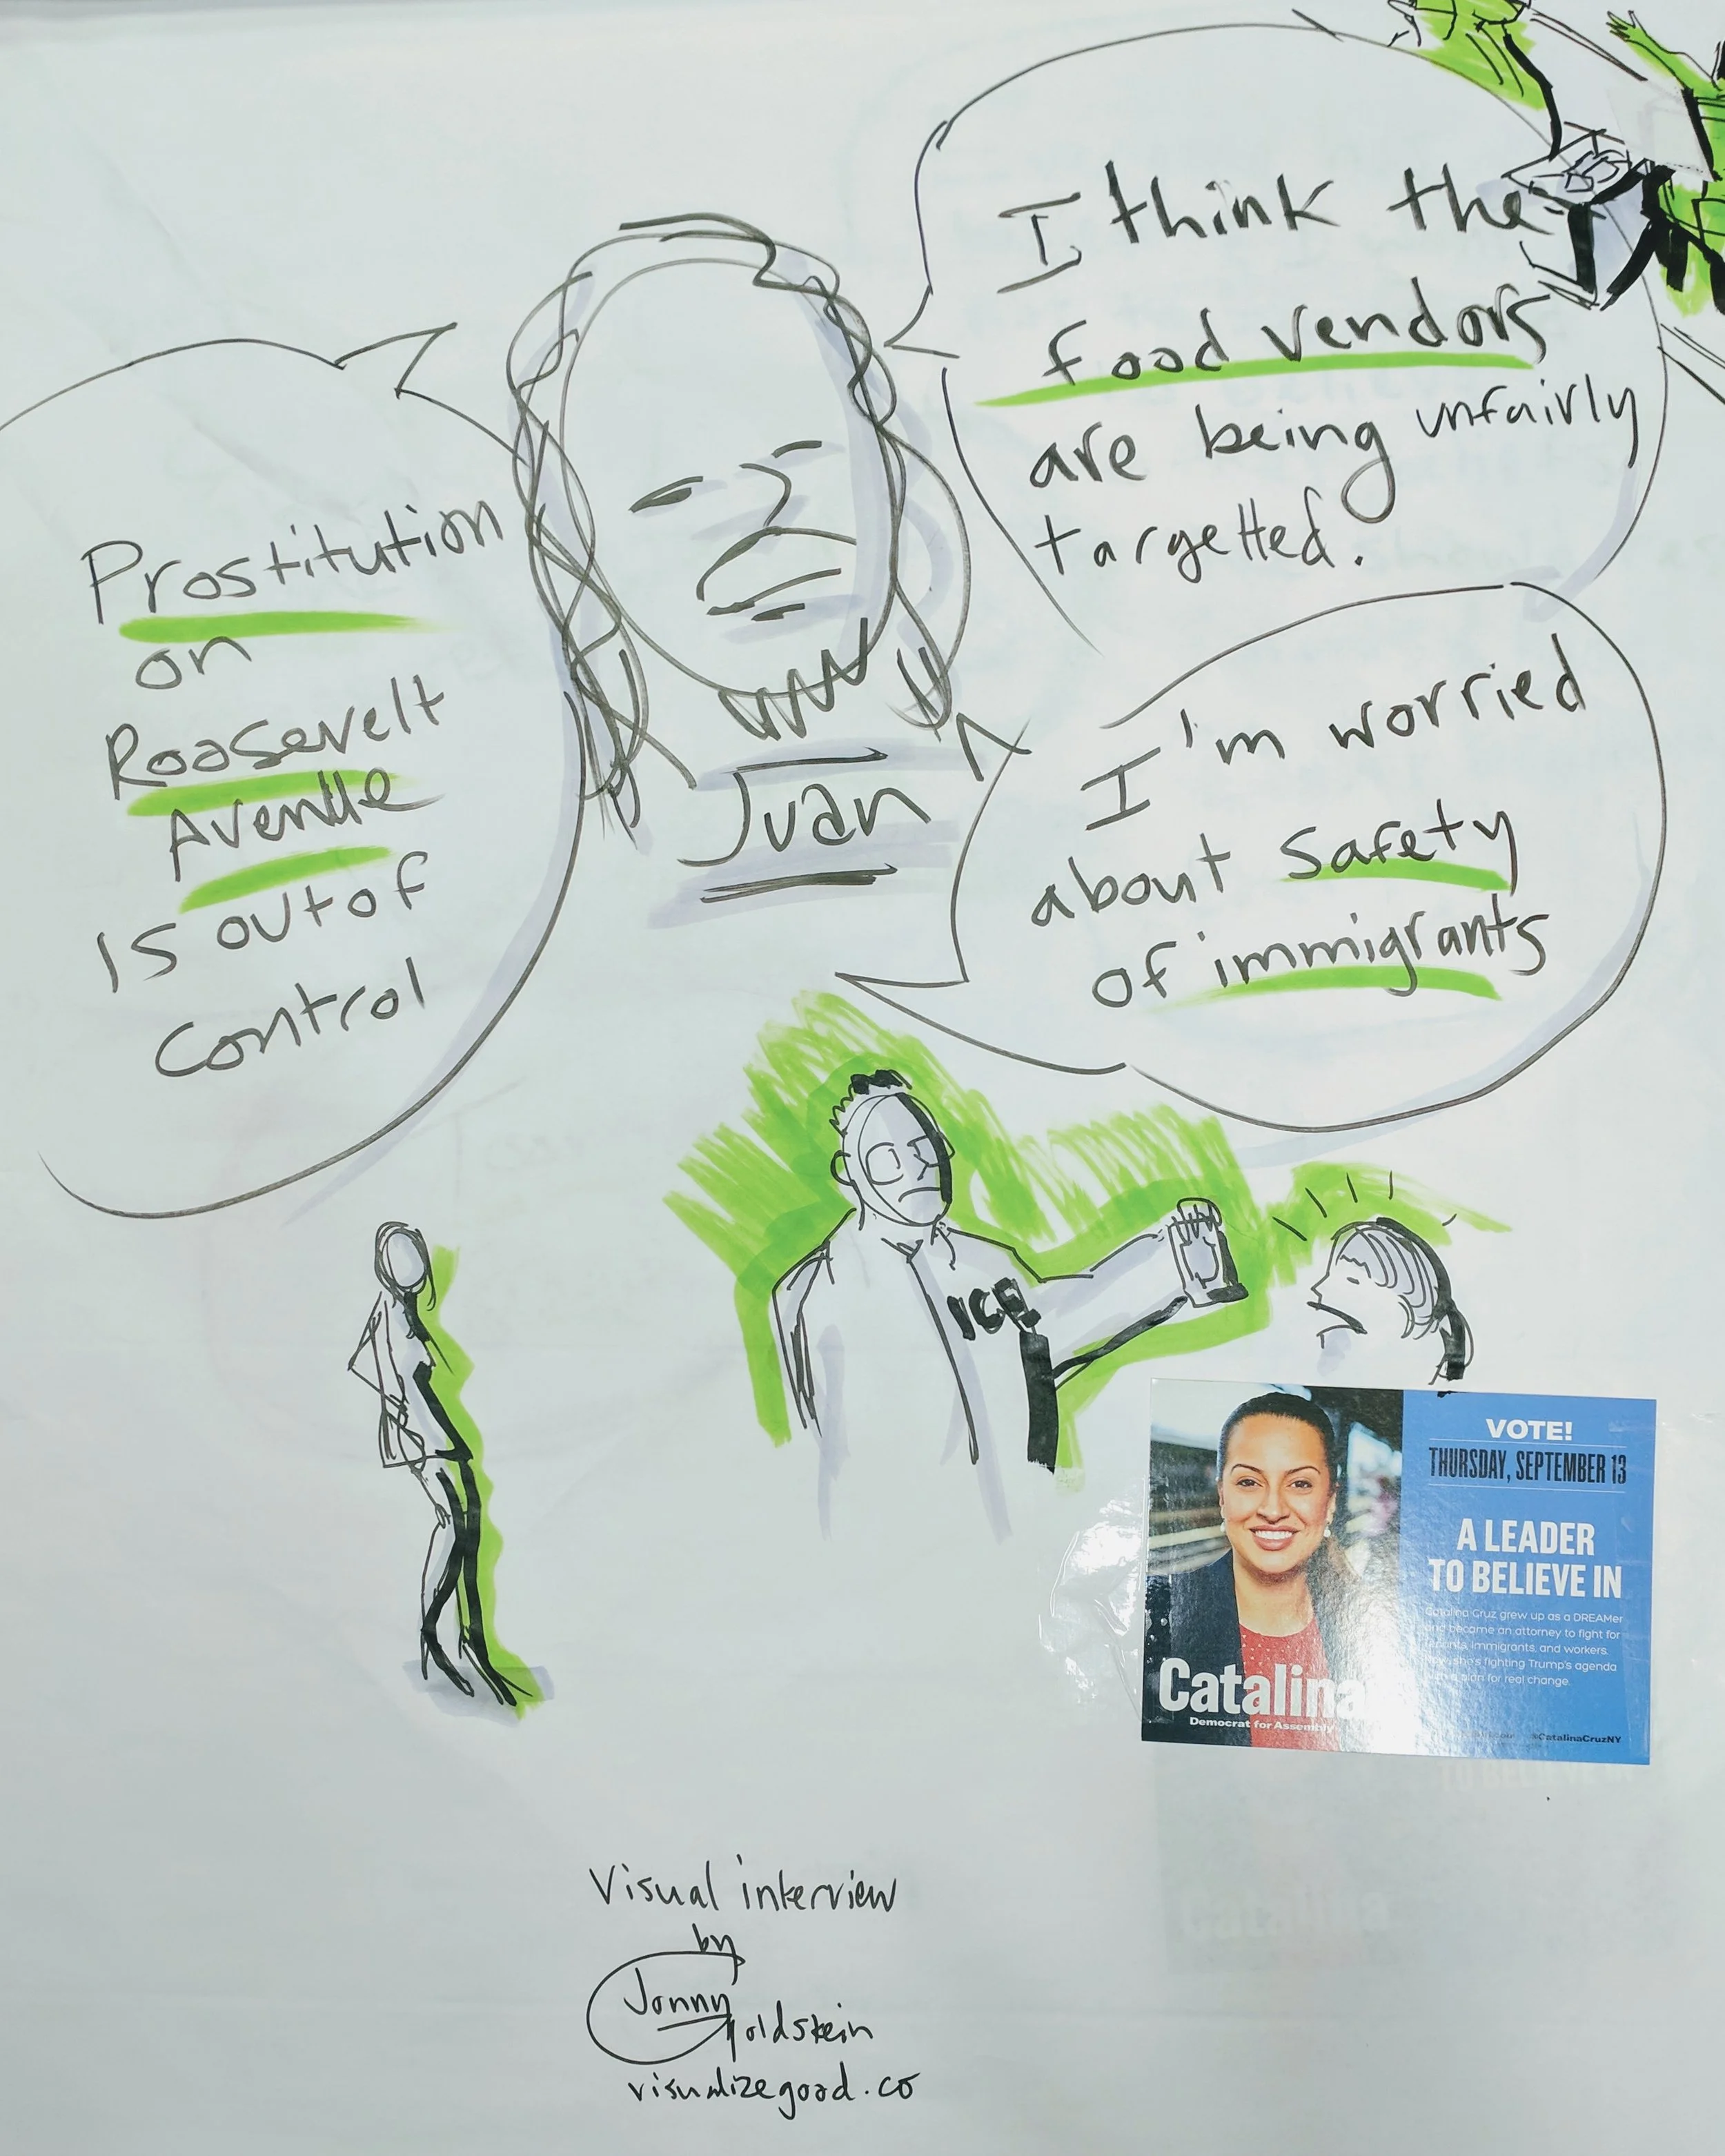 I think the
food vendors
are being unfairly
targetted.
Prostitution
on
Roosevelt
Avenue
is out of
control
Juan
I'm worried
about safety
of immigrants
ICE
VOTE!
THURSDAY, SEPTEMBER 13
A LEADER
TO BELIEVE IN
Catalina Cruz grew up as a DREAMer
and became an attorney to fight for
immigrants, and workers.
she's fighting Trump's agenda
plan for real change.
Catalina
Democrat for Assembly
@CatalinaCruzNY
Visual interview
by
Jonny
Goldstein
visualizegood.co